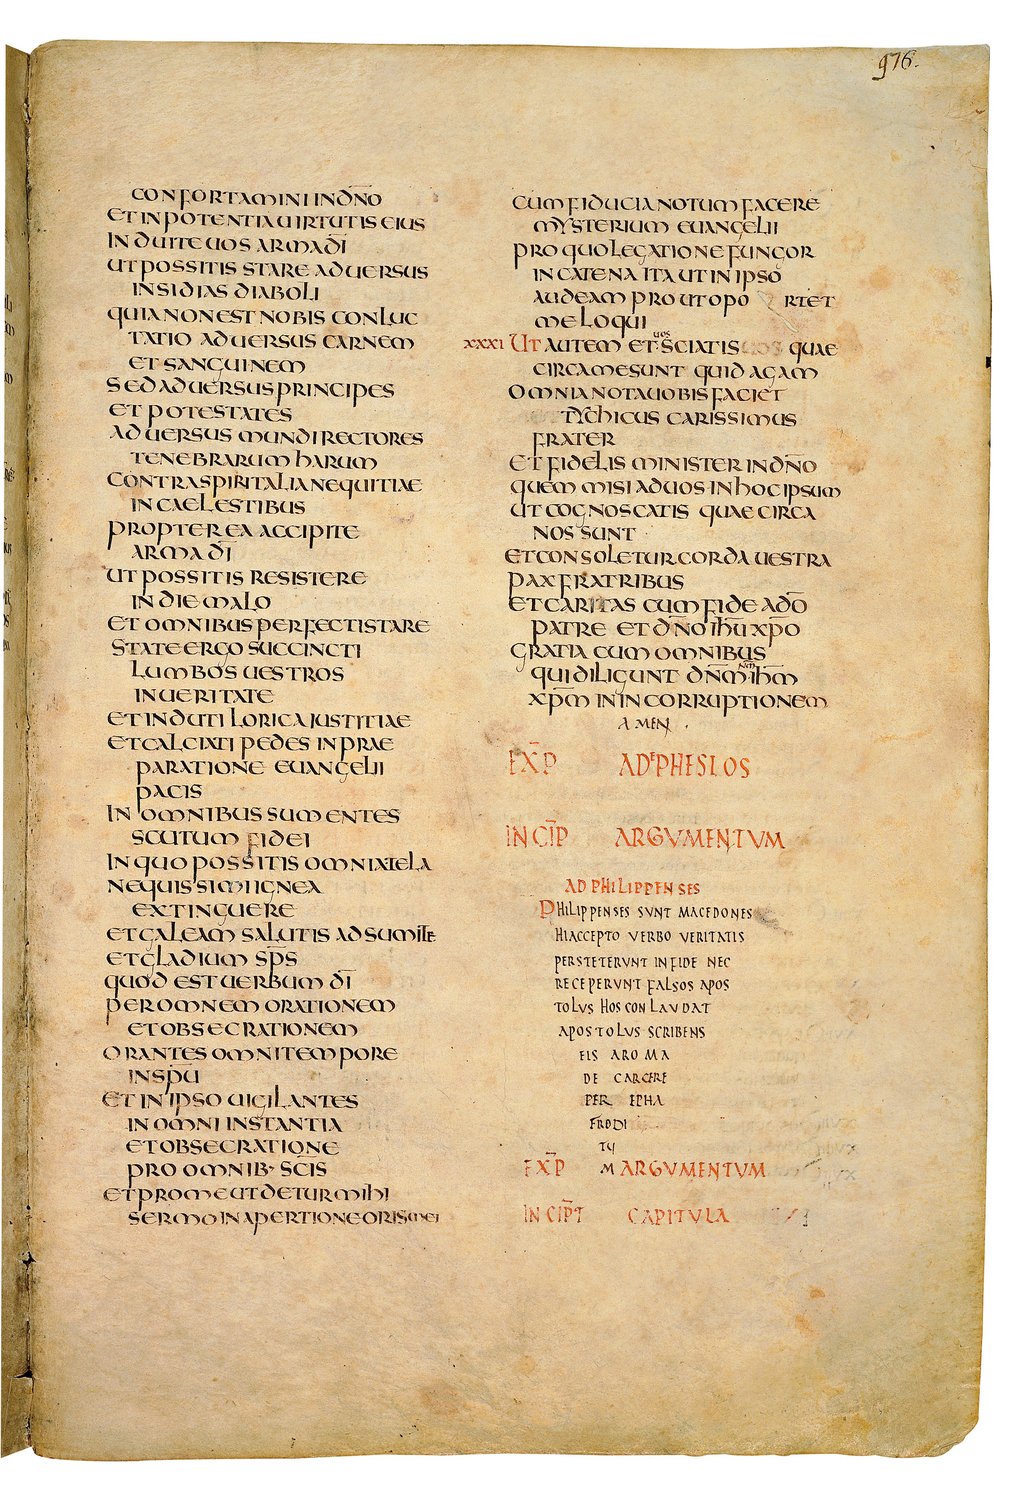 976.
CONFORTAMINI IN DN̄O
ET IN POTENTIA UIRTUTIS EIUS
INDUITE UOS ARMA DĪ
UT POSSITIS STARE ADUERSUS
INSIDIAS DIABOLI
QUIA NON EST NOBIS CONLUC
TATIO ADUERSUS CARNEM
ET SANGUINEM
SED ADUERSUS PRINCIPES
ET POTESTATES
ADUERSUS MUNDI RECTORES
TENEBRARUM HARUM
CONTRA SPIRITALIA NEQUITIAE
IN CAELESTIBUS
PROPTEREA ACCIPITE
ARMA DĪ
UT POSSITIS RESISTERE
IN DIE MALO
ET OMNIBUS PERFECTI STARE
STATE ERGO SUCCINCTI
LUMBOS UESTROS
IN UERITATE
ET INDUTI LORICA IUSTITIAE
ET CALCIATI PEDES IN PRAE
PARATIONE EUANGELII
PACIS
IN OMNIBUS SUMENTES
SCUTUM FIDEI
IN QUO POSSITIS OMNIA TELA
NEQUISSIMI IGNEA
EXTINGUERE
ET GALEAM SALUTIS ADSUMITE
ET GLADIUM SPS̄
QUOD EST UERBUM DĪ
PER OMNEM ORATIONEM
ET OBSECRATIONEM
ORANTES OMNI TEMPORE
IN SPŪ
ET IN IPSO UIGILANTES
IN OMNI INSTANTIA
ET OBSECRATIONE
PRO OMNIB· SC̄IS
ET PRO ME UT DETUR MIHI
SERMO IN APERTIONE ORIS MEI
CUM FIDUCIA NOTUM FACERE
MYSTERIUM EUANGELII
PRO QUO LEGATIONE FUNGOR
IN CATENA ITA UT IN IPSO
AUDEAM PROUT OPORTET
ME LOQUI
XXXI UT AUTEM ET UOS SCIATIS QUAE
CIRCA ME SUNT QUID AGAM
OMNIA NOTA UOBIS FACIET
TYCHICUS CARISSIMUS
FRATER
ET FIDELIS MINISTER IN DN̄O
QUEM MISI AD UOS IN HOC IPSUM
UT COGNOSCATIS QUAE CIRCA
NOS SUNT
ET CONSOLETUR CORDA UESTRA
PAX FRATRIBUS
ET CARITAS CUM FIDE A DŌ
PATRE ET DN̄O IHŪ XPŌ
GRATIA CUM OMNIBUS
QUI DILIGUNT DN̄M NM̄ IHM̄
XPM̄ IN INCORRUPTIONEM
AMEN.
EXP̄ AD EPHESIOS
INCIP̄ ARGUMENTUM
AD PHILIPPENSES
PHILIPPENSES SUNT MACEDONES
HI ACCEPTO VERBO VERITATIS
PERSTETERUNT IN FIDE NEC
RECEPERUNT FALSOS APOS
TOLUS HOS CONLAUDAT
APOSTOLUS SCRIBENS
EIS A ROMA
DE CARCERE
PER EPHA
FRODI
TU
M
EXP̄ ARGUMENTUM
INCIP̄T CAPITULA